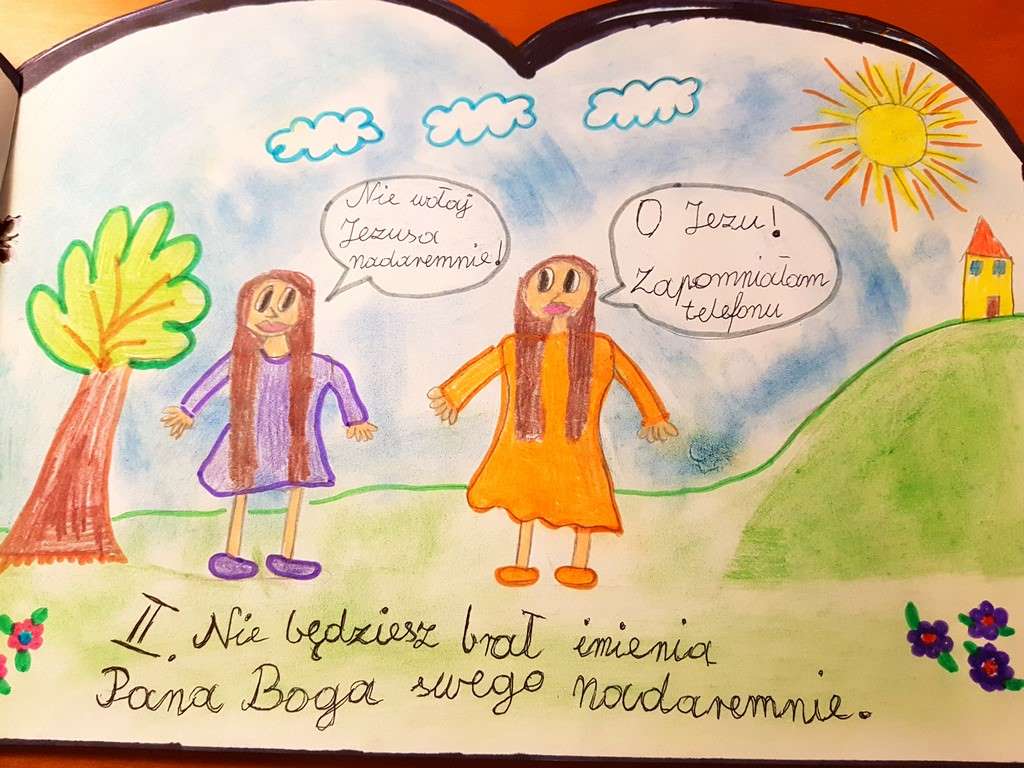 Nie wołaj
Jezusa
nadaremnie!
O Jezu!
Zapomniałam
telefonu
II. Nie będziesz brał imienia
Pana Boga swego nadaremnie.